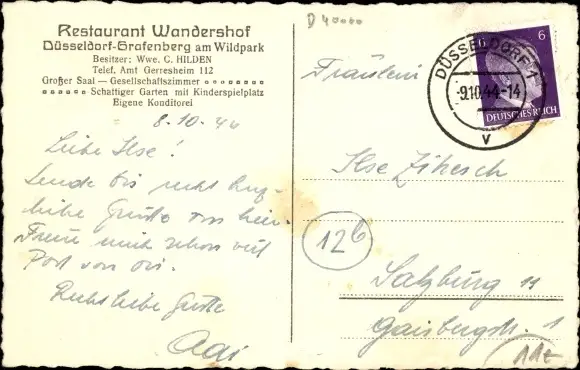 D 40000
Restaurant Wandershof
Düsseldorf-Grafenberg am Wildpark
Besitzer: Wwe. C. HILDEN
Telef. Amt Gerresheim 112
Großer Saal — Gesellschaftszimmer
Schattiger Garten mit Kinderspielplatz
Eigene Konditorei
8.10.44
Liebe Ilse!
Sende dir recht herz-
liche Grüße von hier.
Freue mich schon auf
Post von dir.
Recht liebe Grüße
Adi
DÜSSELDORF 1
9.10.44-14
v
6 6
DEUTSCHES REICH
Fräulein
Ilse
12b
Salzburg 11
Gaisbergstr. 1